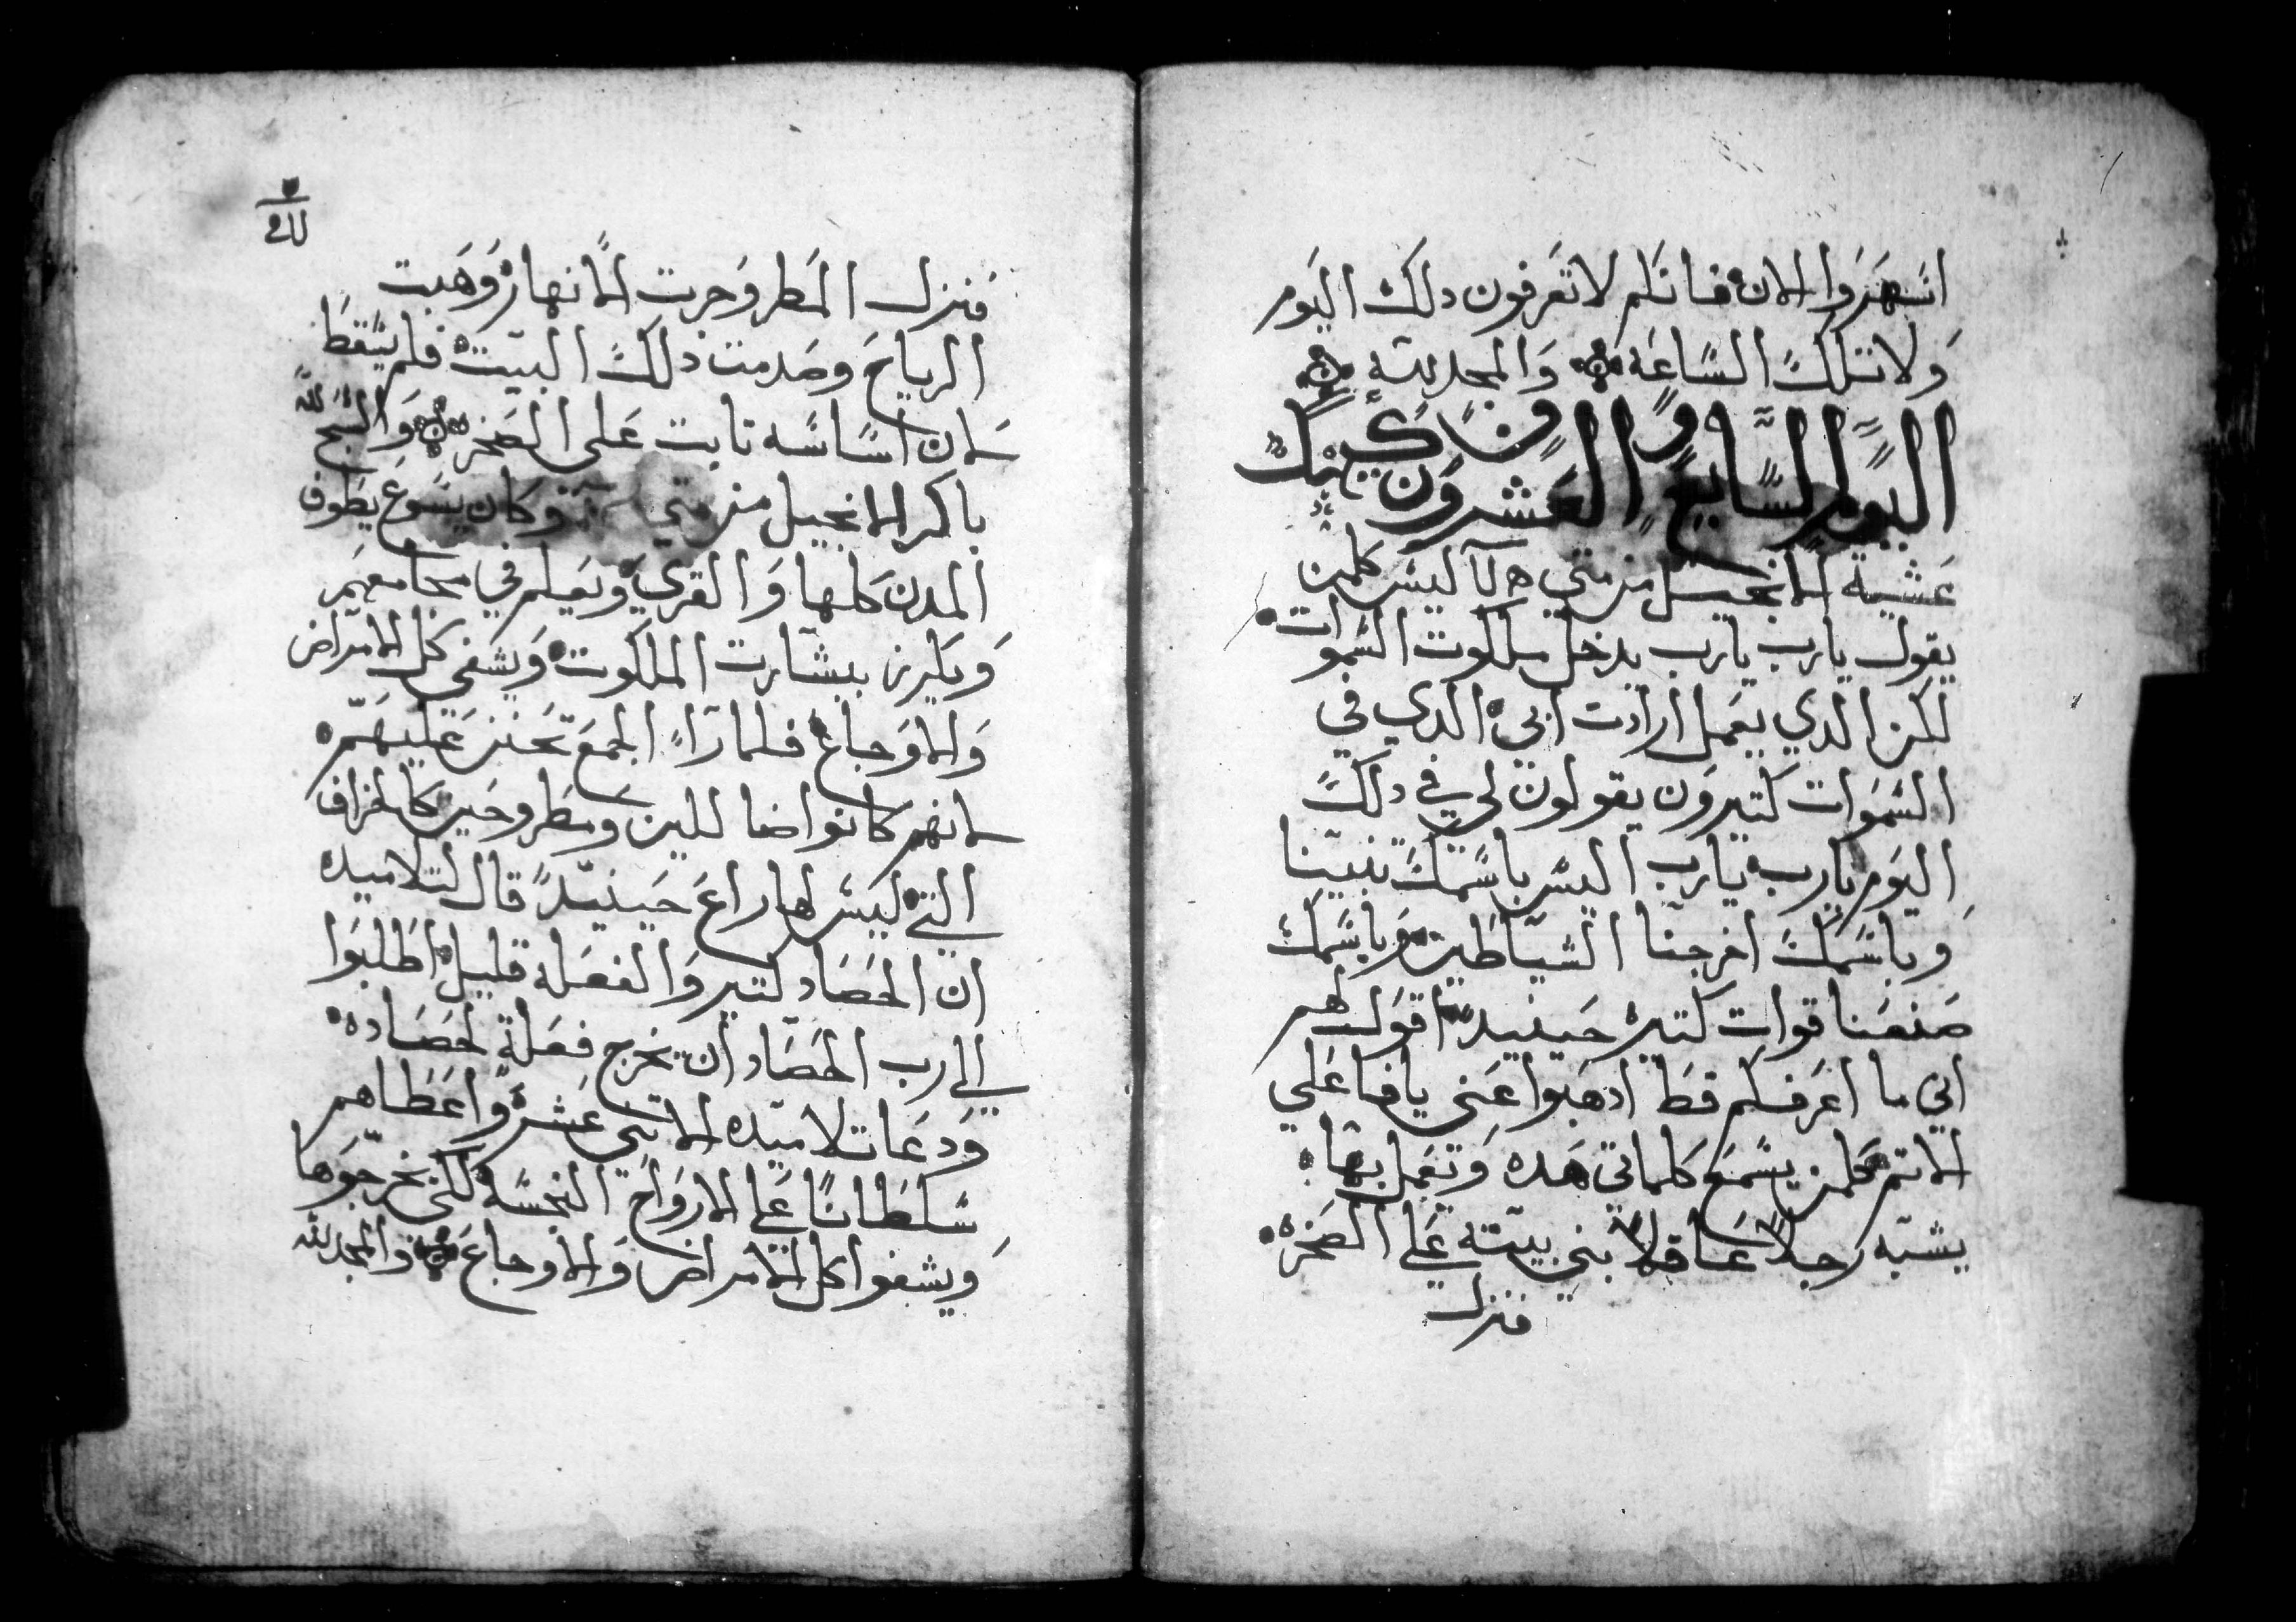 اسهروا الان فانكم لا تعرفون دلك اليوم
ولا تلك الساعه والمجد لله
اليوم السابع والعشرون من كيهك
عشية الانجيل من متي لا ليس كلمن
يقول يارب يارب يدخل ملكوت السموات
لكن الدي يعمل ارادت ابي الدي في
السموات كتيرون يقولون لي في دلك
اليوم يارب يارب اليس باسمك تنبينا
وباسمك اخرجنا الشياطين وباسمك
صنعنا قوات كتيره حينيد اقول لهم
اني ما اعرفكم قط ادهبوا عني يا فاعلي
الاتم فكلمن يسمع كلماتي هده وتعمل بها
يشبه رجلا عاقلا بني بيته علي الصخره
فنزل
فنزل المطر وجرت الانهار وهبت
الرياح وصدمت دلك البيت فلم يسقط
لان اساسه تابت على الصخر والسبح لله
باكر الانجيل من متي وكان يسوع يطوف
المدن كلها والقري ويعلم في مجامعهم
ويكرز ببشارت الملكوت ويشفي كل الامراض
والاوجاع فلما راء الجمع تحنن عليهم
لانهم كانوا ضاللين ومطروحين كالخراف
التي ليس لها راع حينيد قال لتلاميده
ان الحصاد كتير والفعله قليل اطلبوا
الي رب الحصاد ان يخرج فعلة لحصاده
ودعا تلاميده الاتني عشر واعطاهم
سلطانا علي الارواح النجسه لكي يخرجوها
ويشفوا كل الامراض والاوجاع والمجد لله